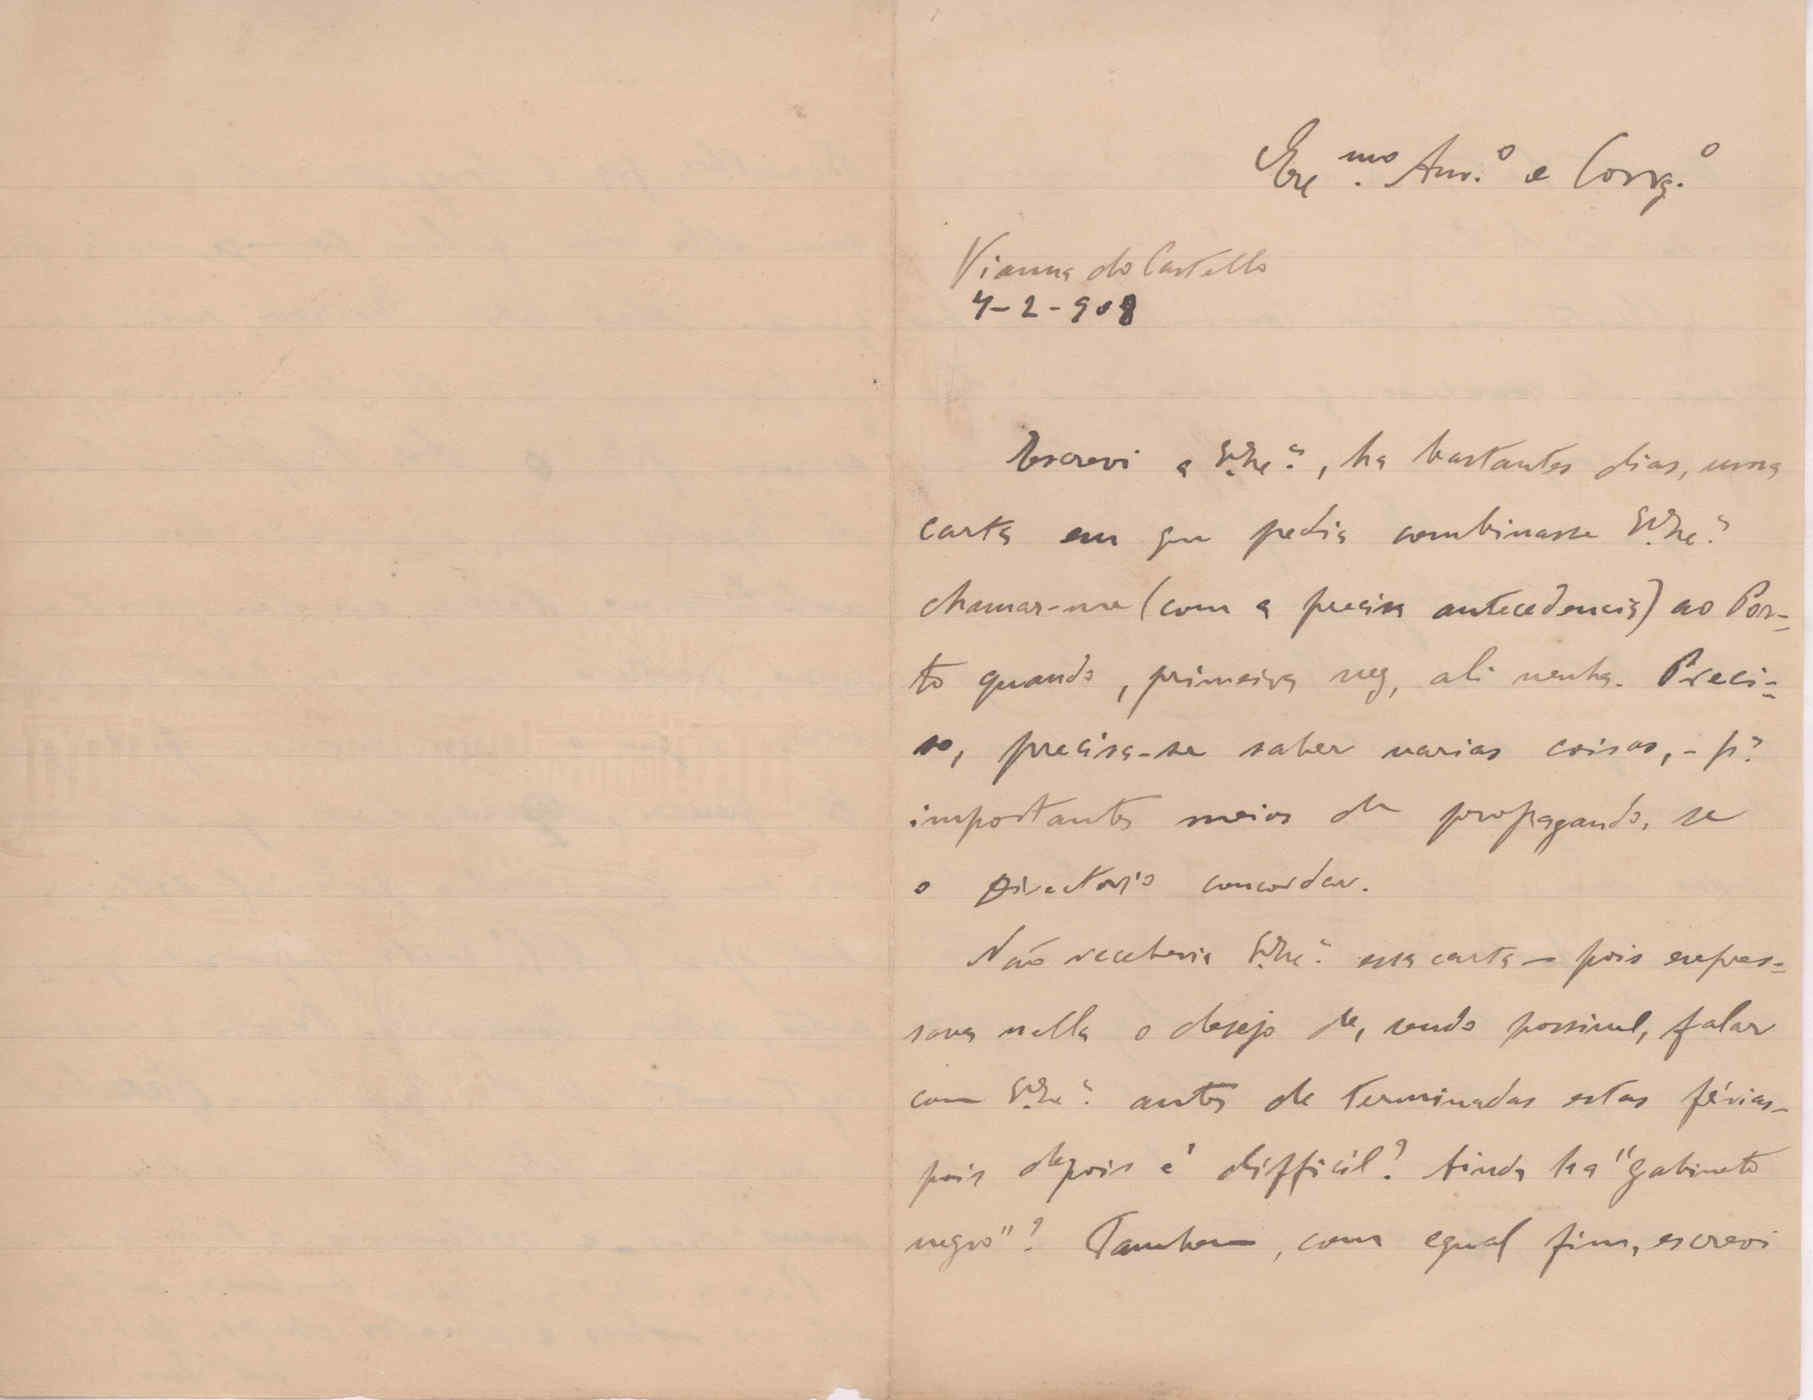 Exc.mo Am.º e Corrg.º
Vianna do Castello
4-2-908
Escrevi a V. Ex.ª, ha bastantes dias, uma
carta em que pedia combinasse V. Ex.ª
chamar-me (com a precisa antecedencia) ao Por-
to quando, primeira vez, ali venha. Preci-
so, precisa-se saber varias coisas, - p.ª
importantes meios de propaganda, se
o Directorio concordar.
Não receberia V. Ex.ª essa carta - pois expres-
sava nella o desejo de, sendo possivel, falar
com V. Ex.ª antes de terminadas estas férias -
pois depois é difficil? Ainda ha "gabinete
negro"? Tambem, com egual fim, escrevi